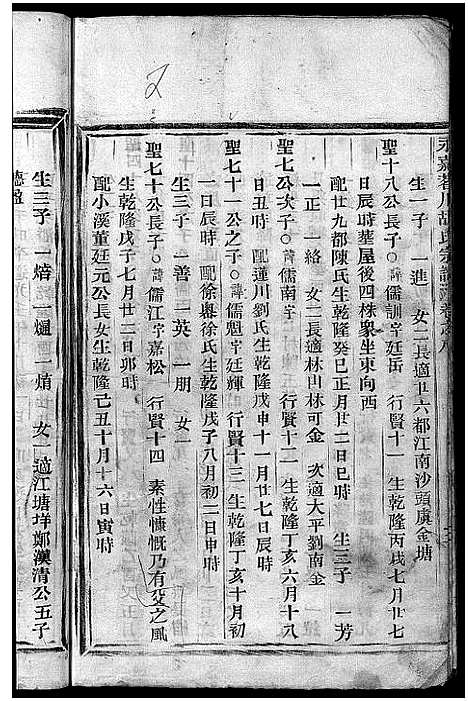 永嘉茗川胡氏宗譜 卷之
生一子 一進 女二長適廿六都江南沙頭虞金塘
聖十八公長子○諱儒訓字廷岳 行賢十一 生乾隆丙戌七月廿七
日辰時葬屋後四株象坐東向西
配廿九都陳氏生乾隆癸巳正月廿二日巳時 生三子 一芳
一正 一絡 女二長適林山林可金 次適大平劉南金
聖七公次子○諱儒南字 行賢十二 生乾隆丁亥六月十八
日丑時 配蓬川劉氏生乾隆戊申十一月廿七日辰時
聖七十一公之子○諱儒魁字廷輝 行賢十三 生乾隆丁亥十月初
一日辰時 配徐嶴徐氏生乾隆戊子八月初二日申時
生三子 一善 一英 一朋 女一
聖七十公長子○諱儒江字嘉松 行賢十四 素性慷慨乃有父之風
生乾隆戊子七月廿二日卯時
配小溪董廷元公長女生乾隆己丑十月十六日寅時
生三子 一焙 一煺 一焴 女一適江塘垟鄭漢清公五子
德盈